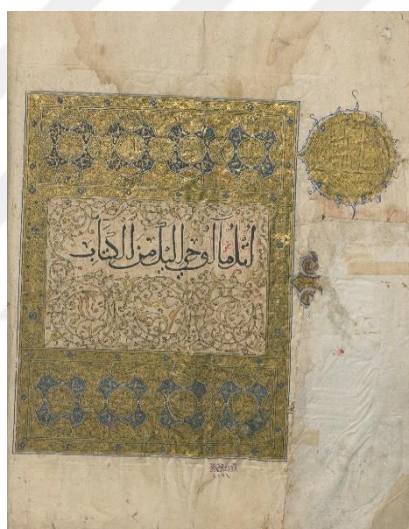 اتل ما اوحي اليك من الكتاب